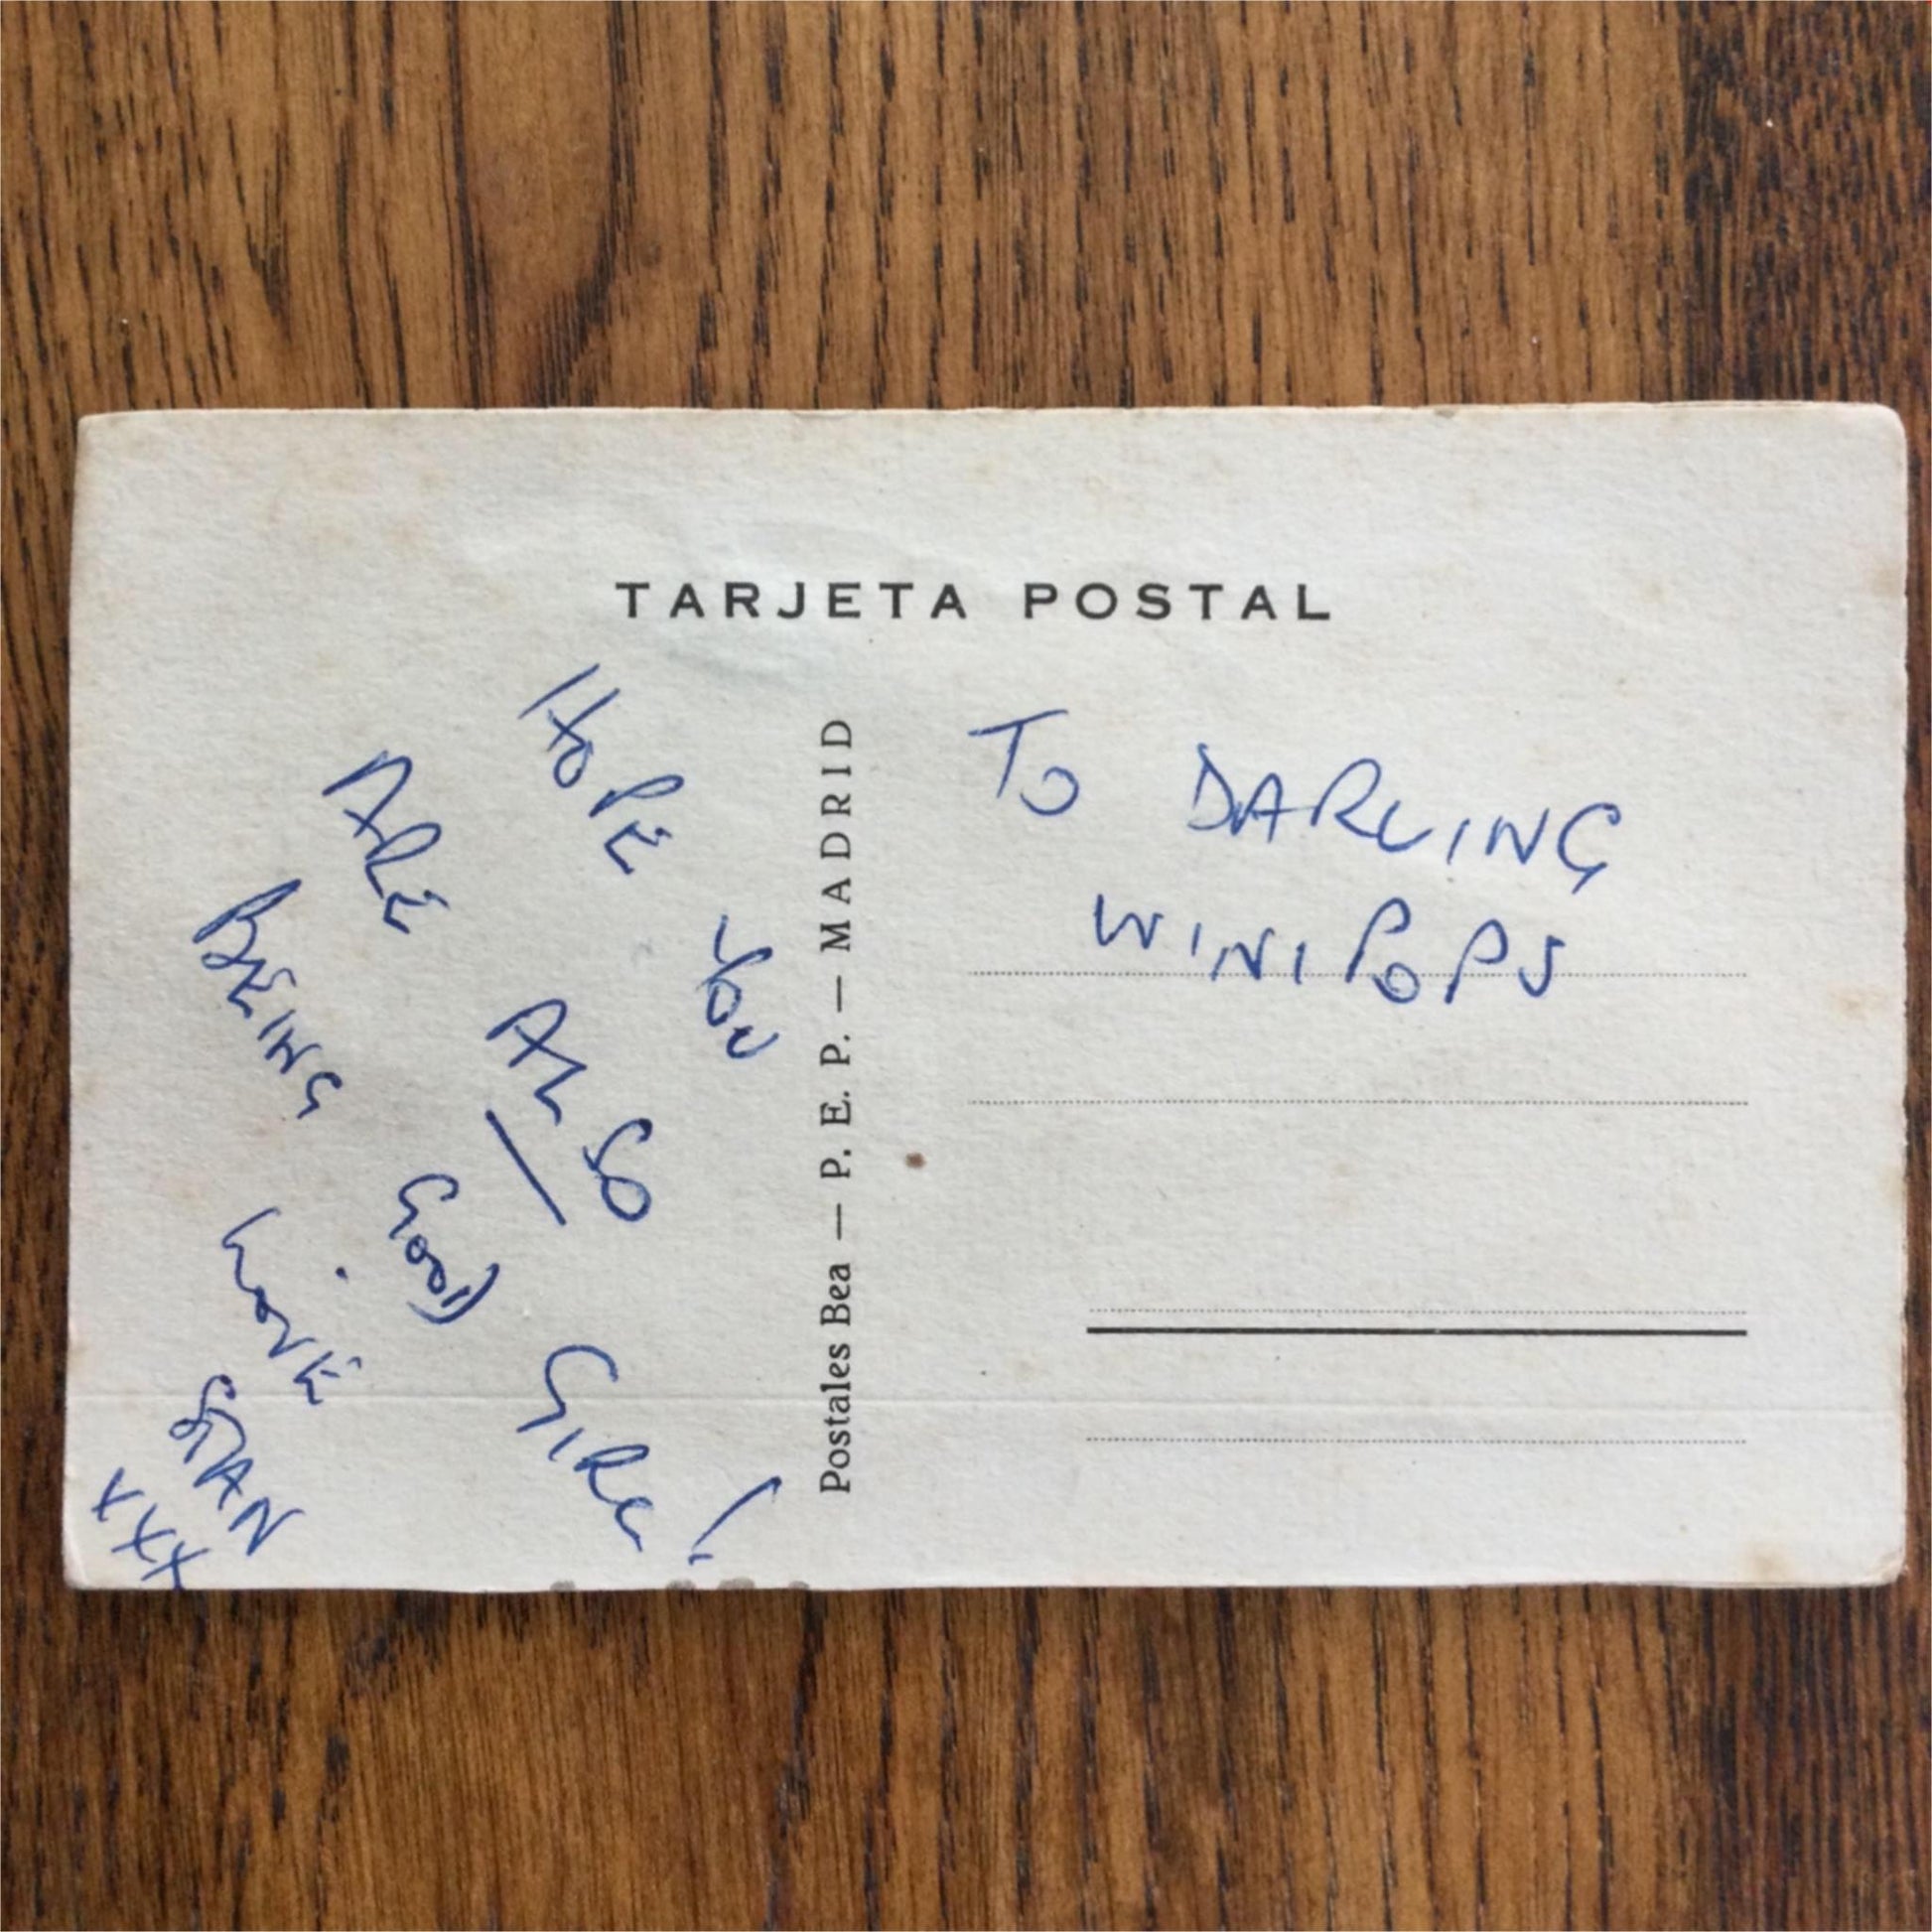 TARJETA POSTAL
HOPE YOU
ARE ALSO
BEING GOOD GIRL!
LOVE
STAN
XXX
Postales Bea — P. E. P. — MADRID
TO DARLING
WINIPOPS